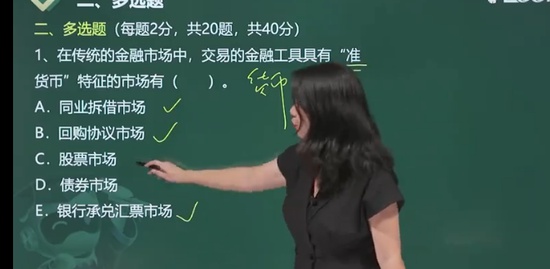 二、多选题
二、多选题（每题2分，共20题，共40分）
1、在传统的金融市场中，交易的金融工具具有“准
货币”特征的市场有（ ）。
货币
A．同业拆借市场
B．回购协议市场
C．股票市场
D．债券市场
E．银行承兑汇票市场